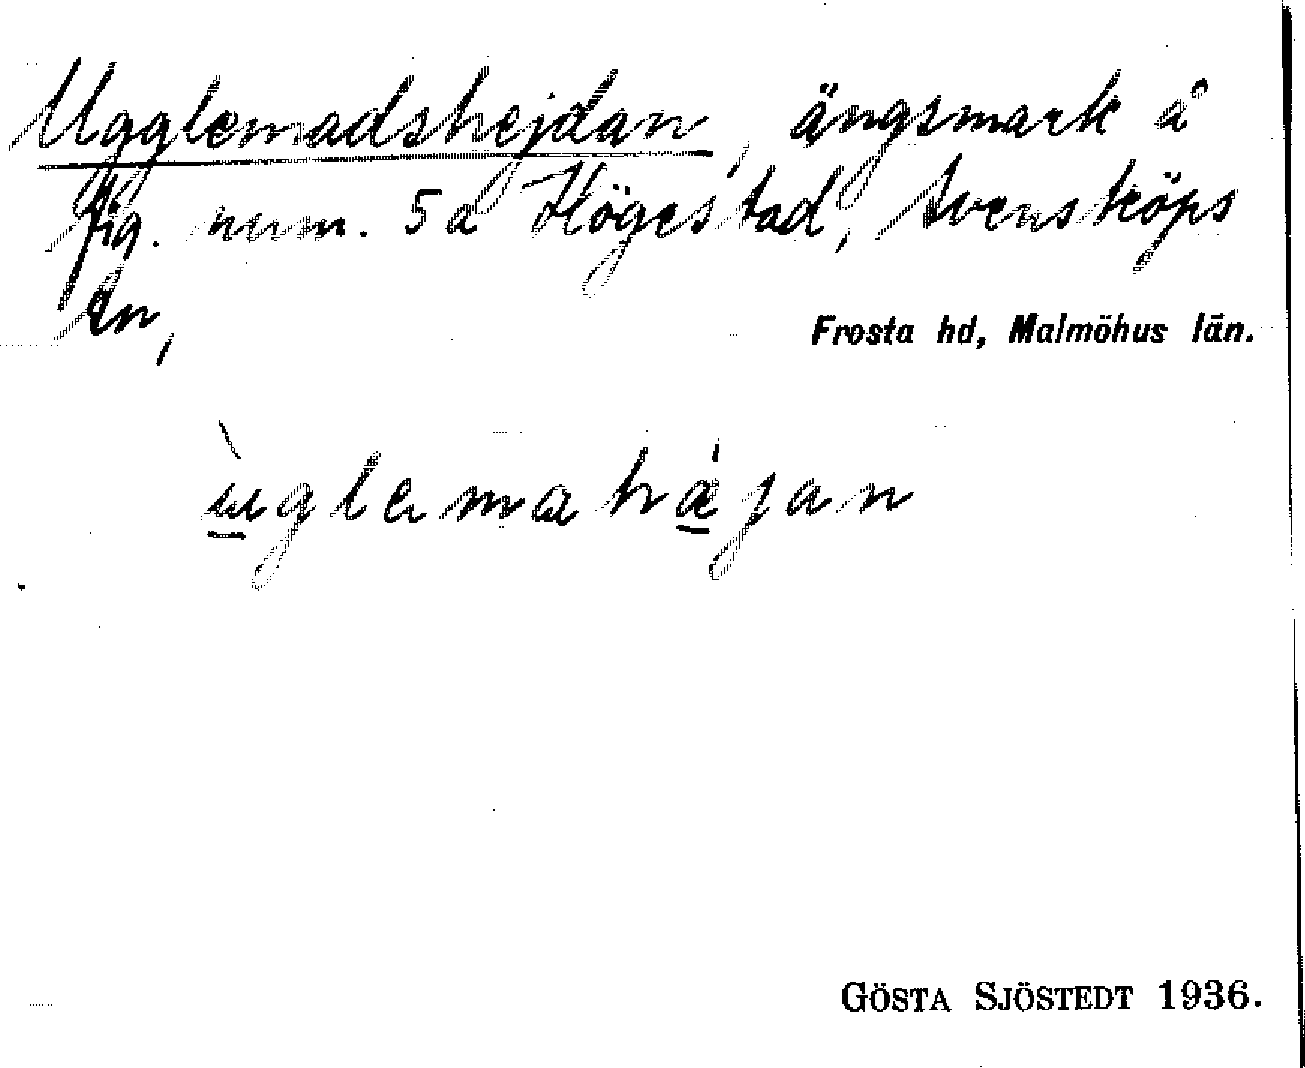 Ugglemadshejdan, ängsmark å
fig. num. 5a Högestad, Svensköps
sn,
Frosta hd, Malmöhus län.
ùglamahǽjan
GÖSTA SJÖSTEDT 1936.